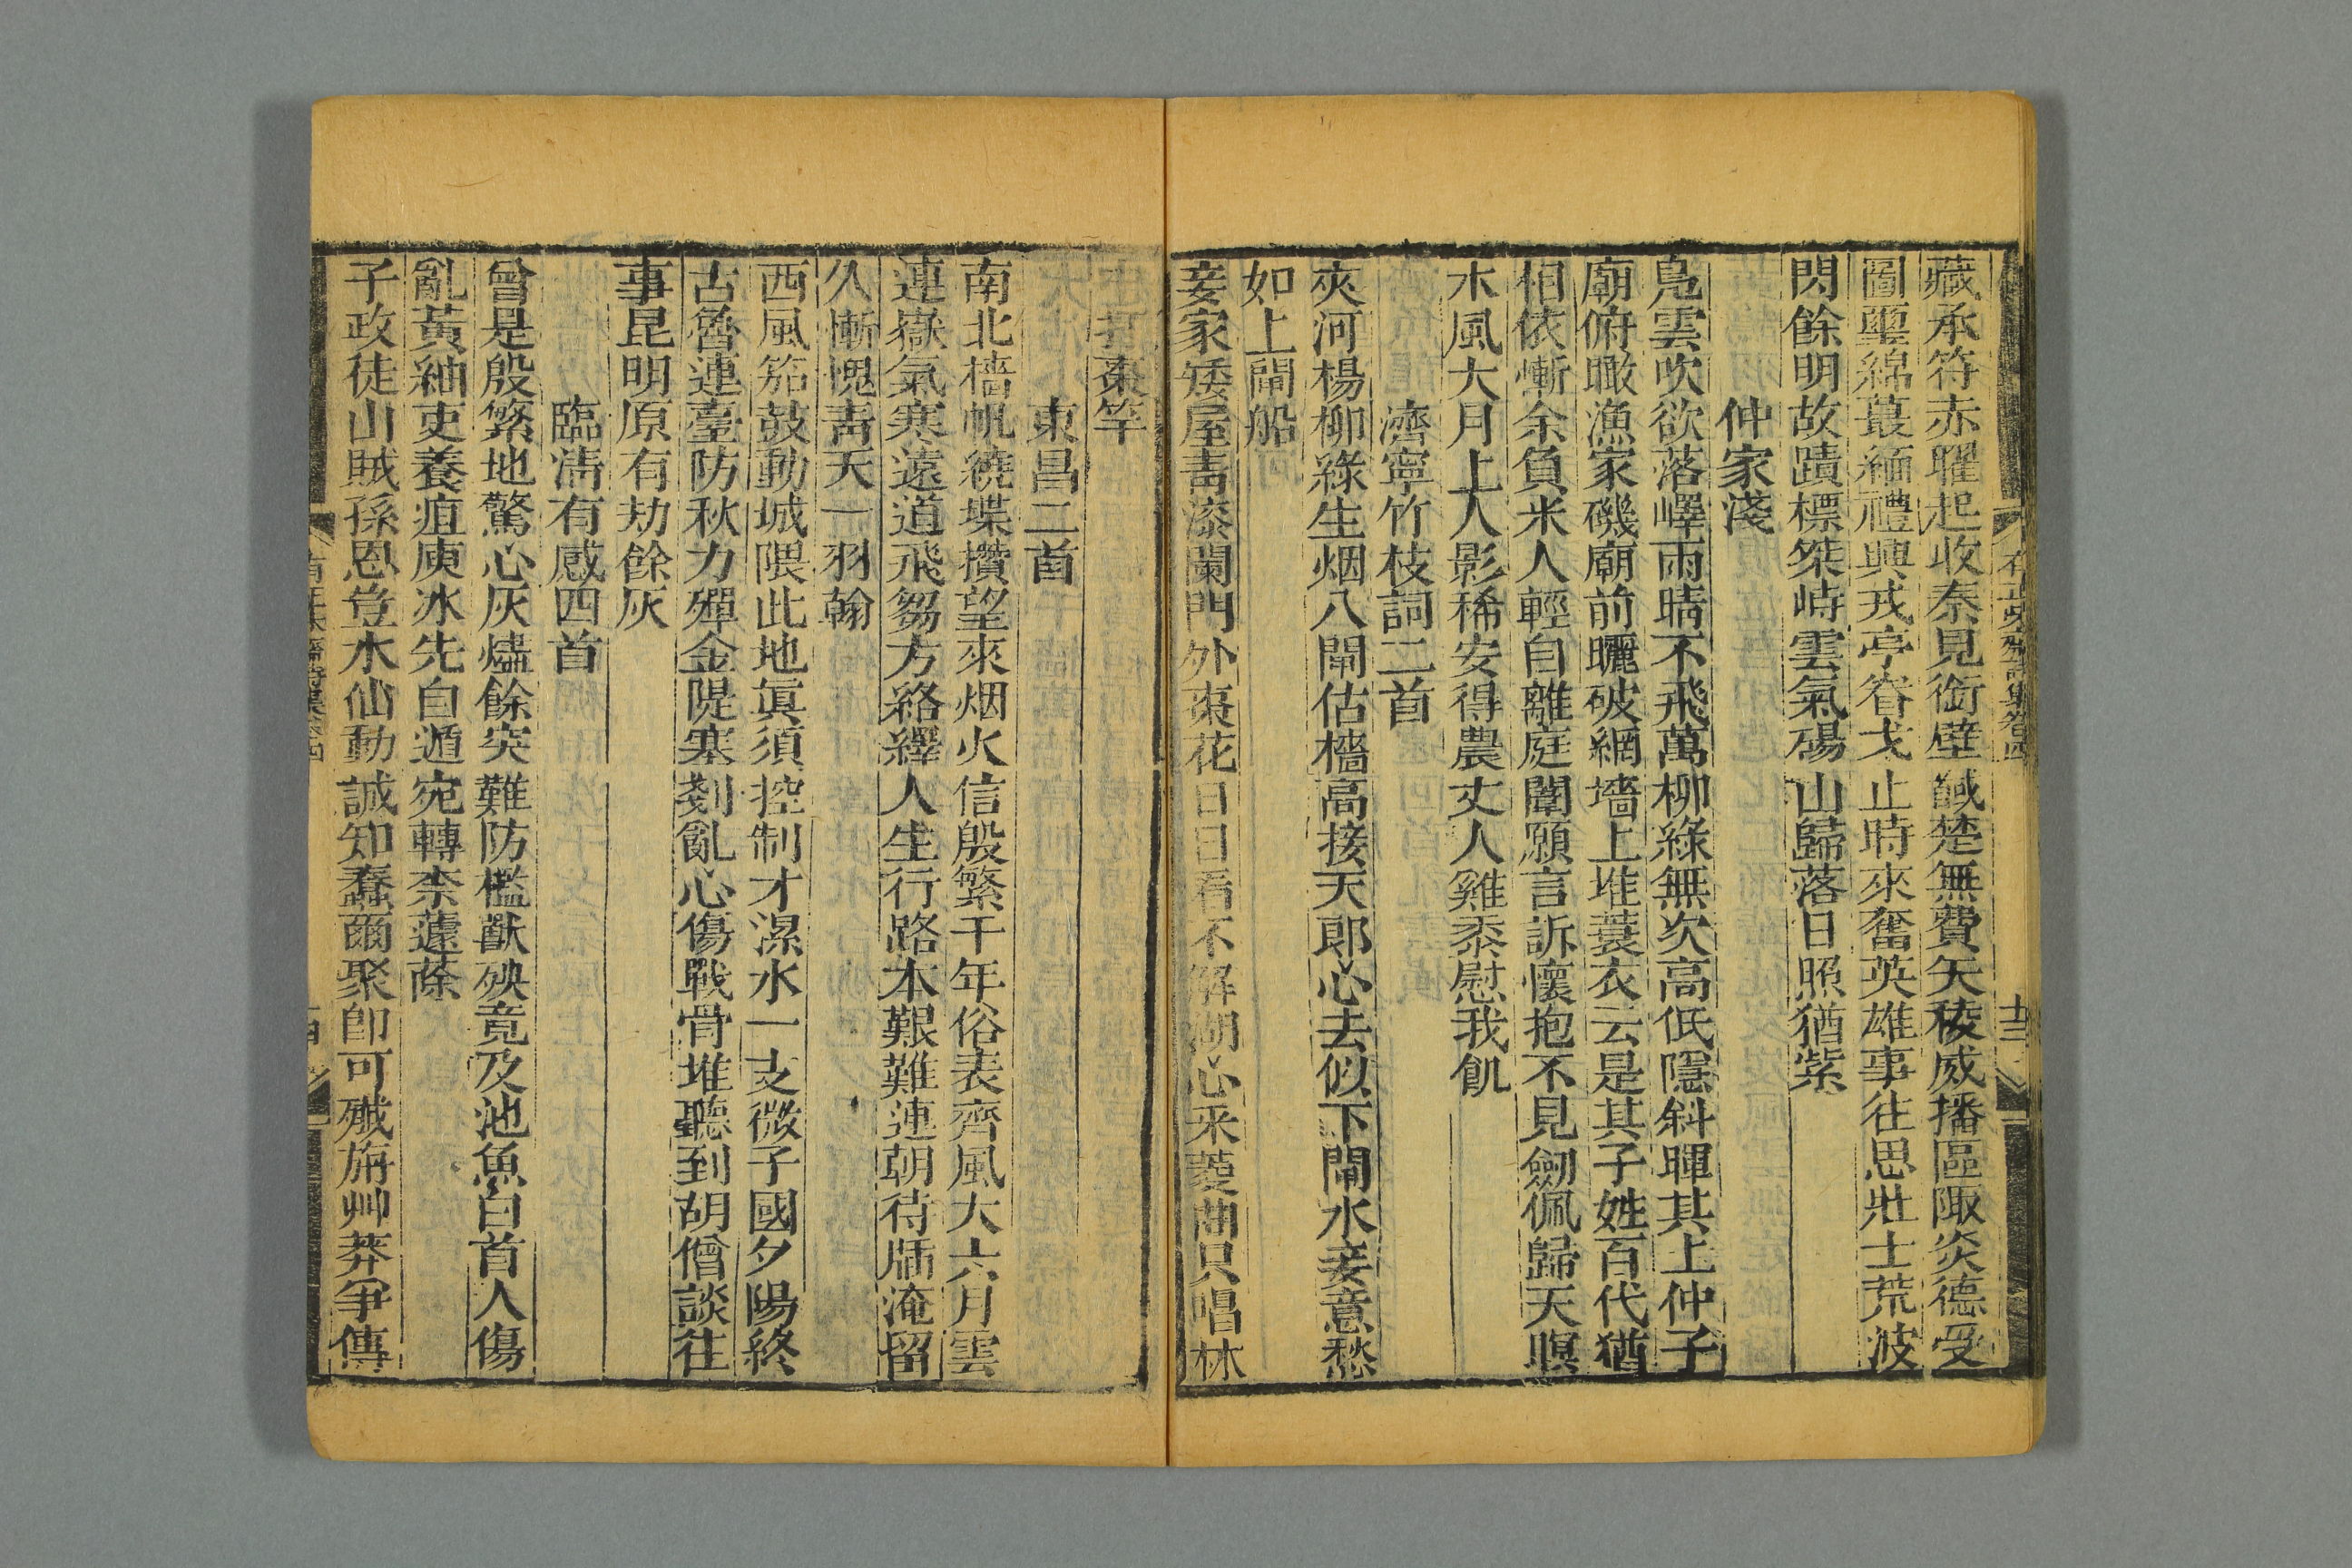 藏承符赤曜起收秦見銜璧馘楚無費矢稜威播區陬炎德受
圖璽綿蕞緬禮興戎亭眘戈止時來奮英雄事往思壯士荒波
閃餘明故蹟標桀峙雲氣碭山歸落日照猶紫
仲家淺
鳧雲吹欲落嶧雨晴不飛萬柳綠無次高低隱斜暉其上仲子
廟俯瞰漁家磯廟前曬破網墻上堆蓑衣云是其子姓百代猶
相依慚余負米人輕自離庭闈願言訴懷抱不見劒佩歸天暝
水風大月上人影稀安得農丈人雞黍慰我飢
濟寧竹枝詞二首
夾河楊柳綠生烟八閘估檣高接天郎心去似下閘水妾意愁
如上閘船
妾家矮屋靑漆闌門外棗花日日看不解湖心采菱曲只唱林
打棗竿
東昌二首
南北檣帆繞堞攢望來烟火信殷繁千年俗表齊風大六月雲
連嶽氣寒遠道飛芻方絡繹人生行路本艱難連朝待牐淹留
久慚愧靑天一羽翰
西風笳鼓動城隈此地眞須控制才漯水一支微子國夕陽終
古魯連臺防秋力殫金隄塞剗亂心傷戰骨堆聽到胡僧談往
事昆明原有劫餘灰
臨淸有感四首
曾是殷繁地驚心灰燼餘突難防檻獸殃竟及池魚白首人傷
亂黃紬吏養疽庾冰先自遁宛轉柰蘧蒢
予政徒山賊孫恩豈水仙動誠知蠢爾聚卽可殱旃艸莽爭傳